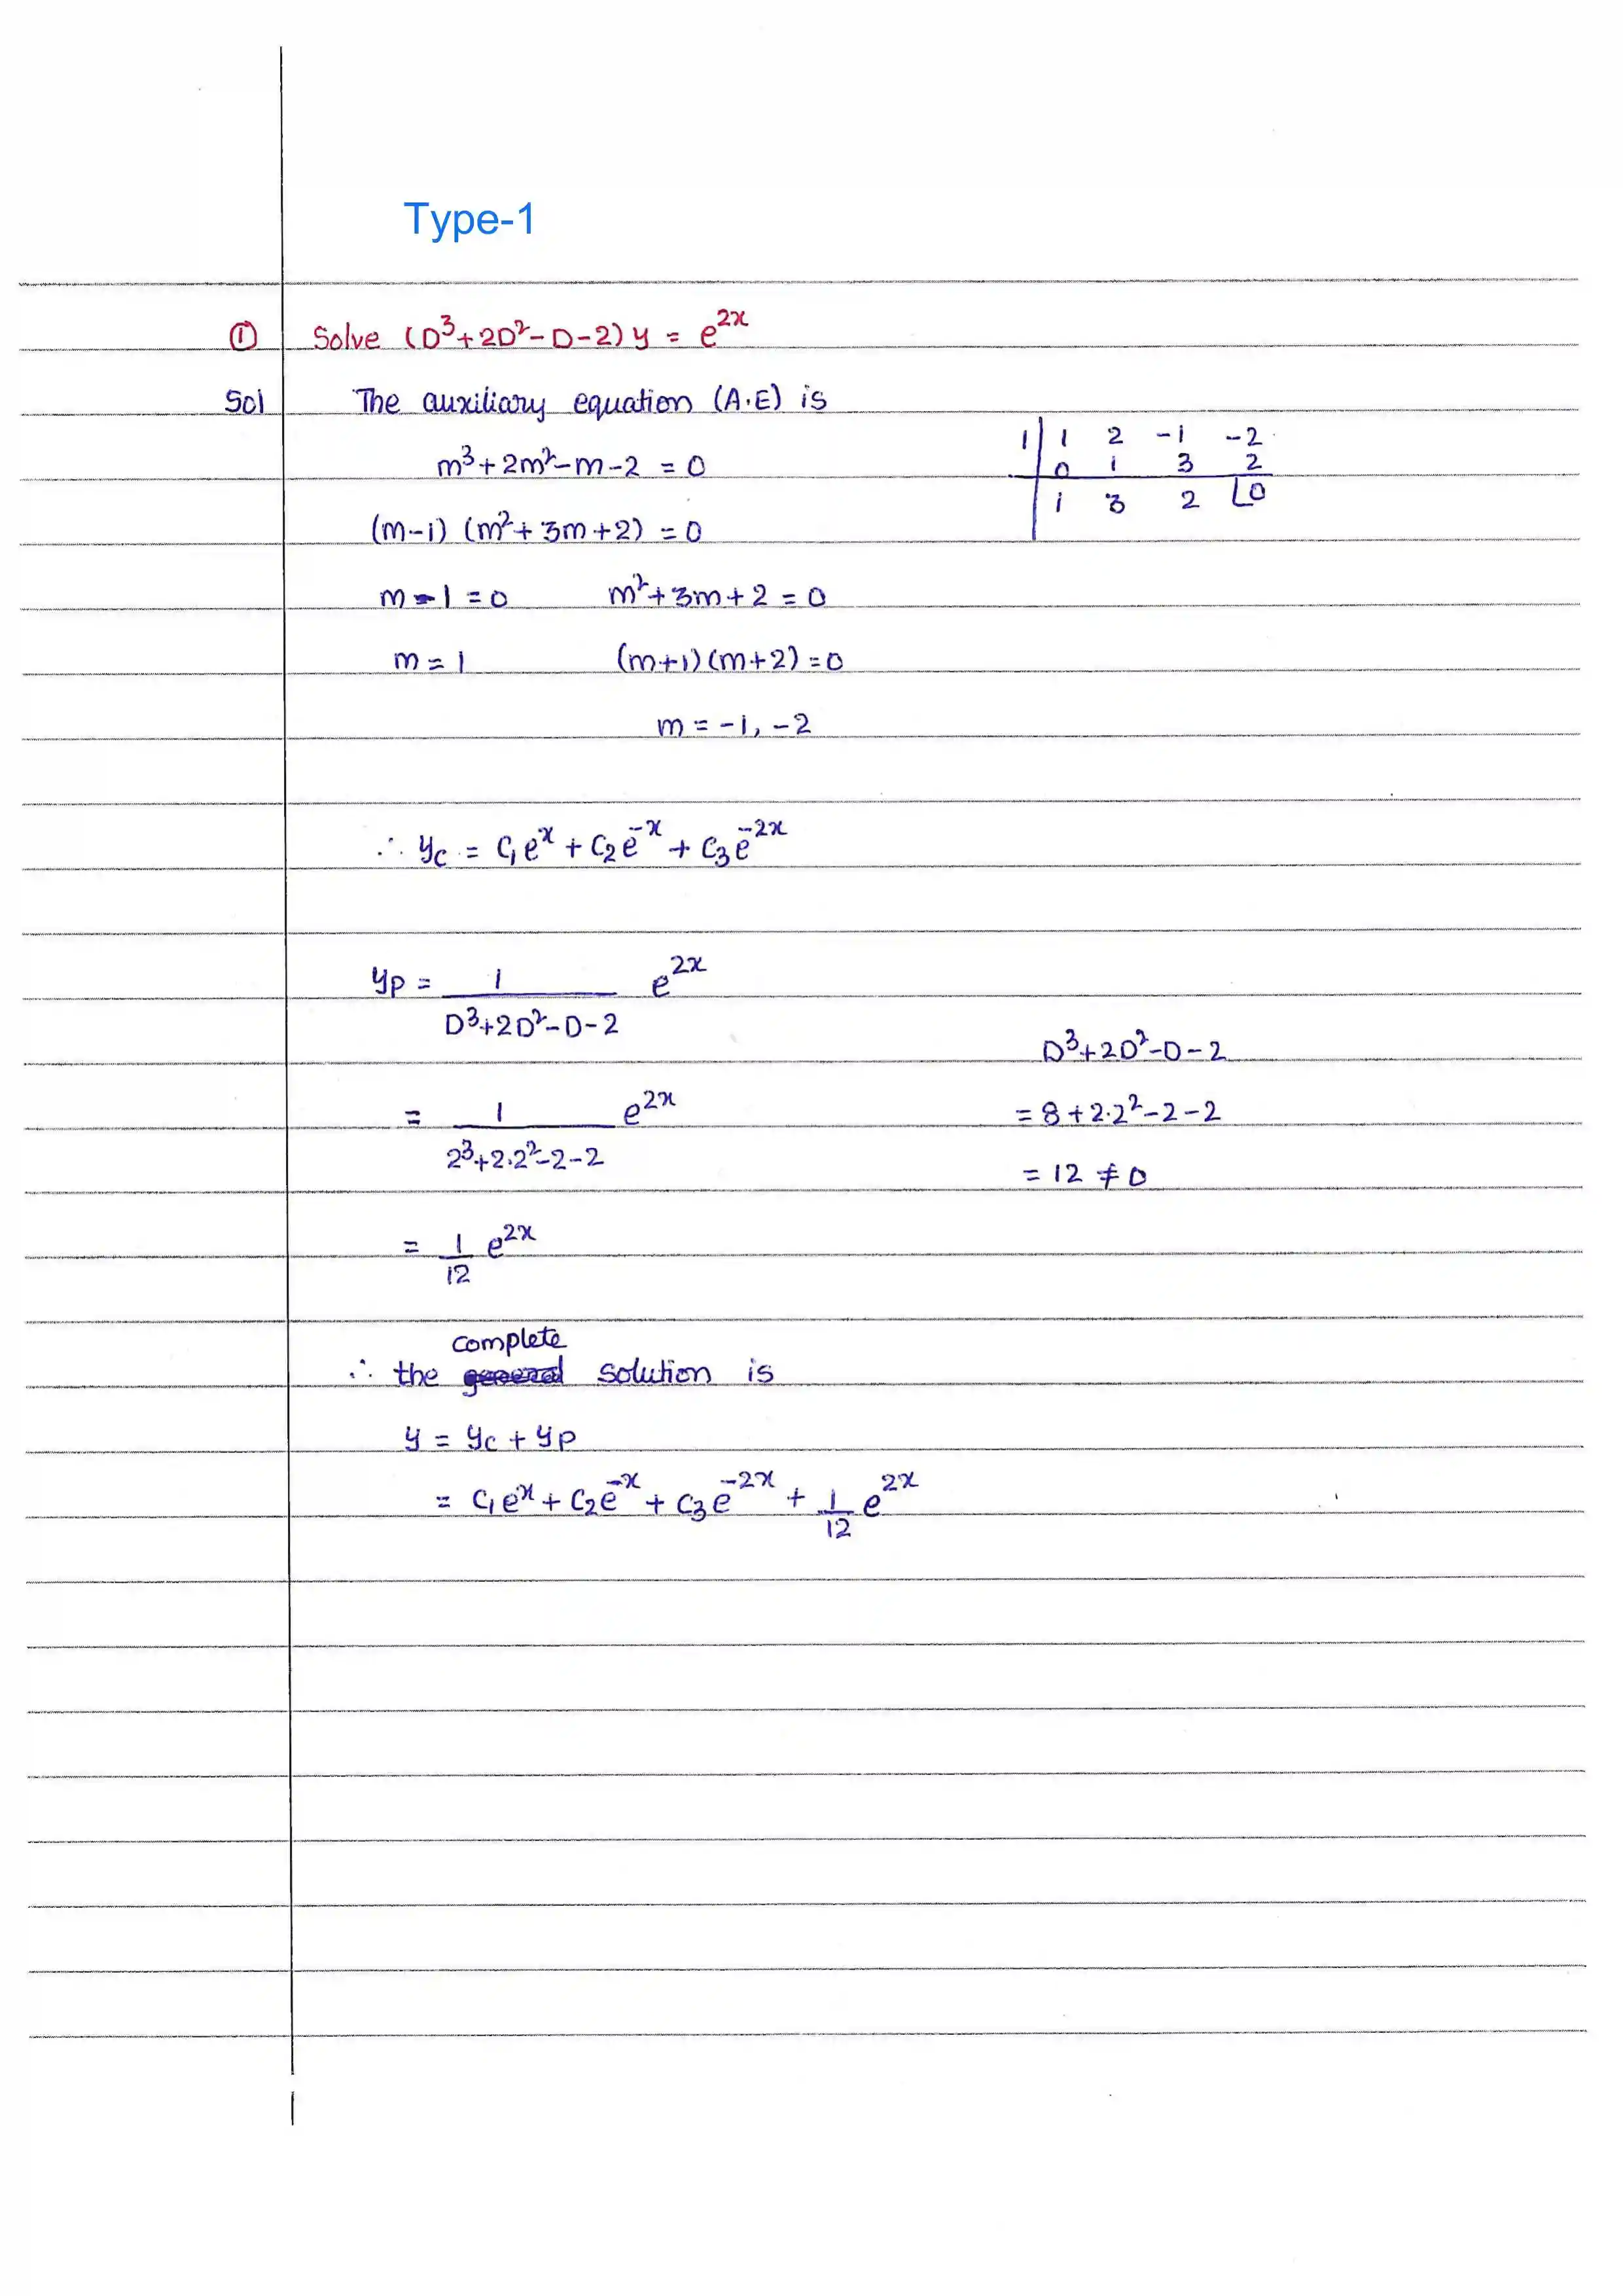 Type-1
① Solve (D³+2D²-D-2)y = e^{2x}
Sol The auxiliary equation (A.E) is
m³+2m²-m-2 = 0
1 | 1 2 -1 -2
0 1 3 2
1 3 2 |0
(m-1) (m²+3m+2) = 0
m-1=0 m²+3m+2=0
m=1 (m+1)(m+2)=0
m = -1, -2
∴ yc = c₁e^{x} + c₂e^{-x} + c₃e^{-2x}
yp = 1/(D³+2D²-D-2) e^{2x}
D³+2D²-D-2
= 1/(2³+2.2²-2-2) e^{2x}
= 8+2.2²-2-2
= 12 ≠ 0
= 1/12 e^{2x}
∴ the complete solution is
y = yc + yp
= c₁e^{x} + c₂e^{-x} + c₃e^{-2x} + 1/12 e^{2x}